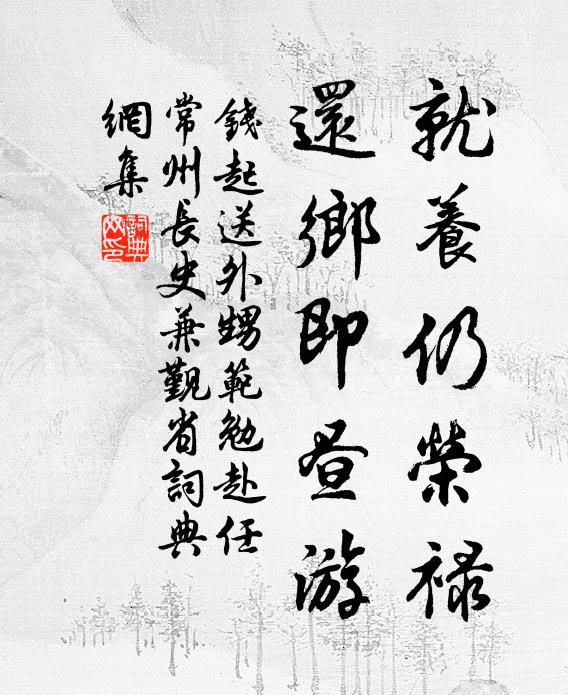 就養仍榮祿
還鄉即昼游
錢起送外甥範勉赴任
常州長史兼覲省詞典
網集
詞典网印